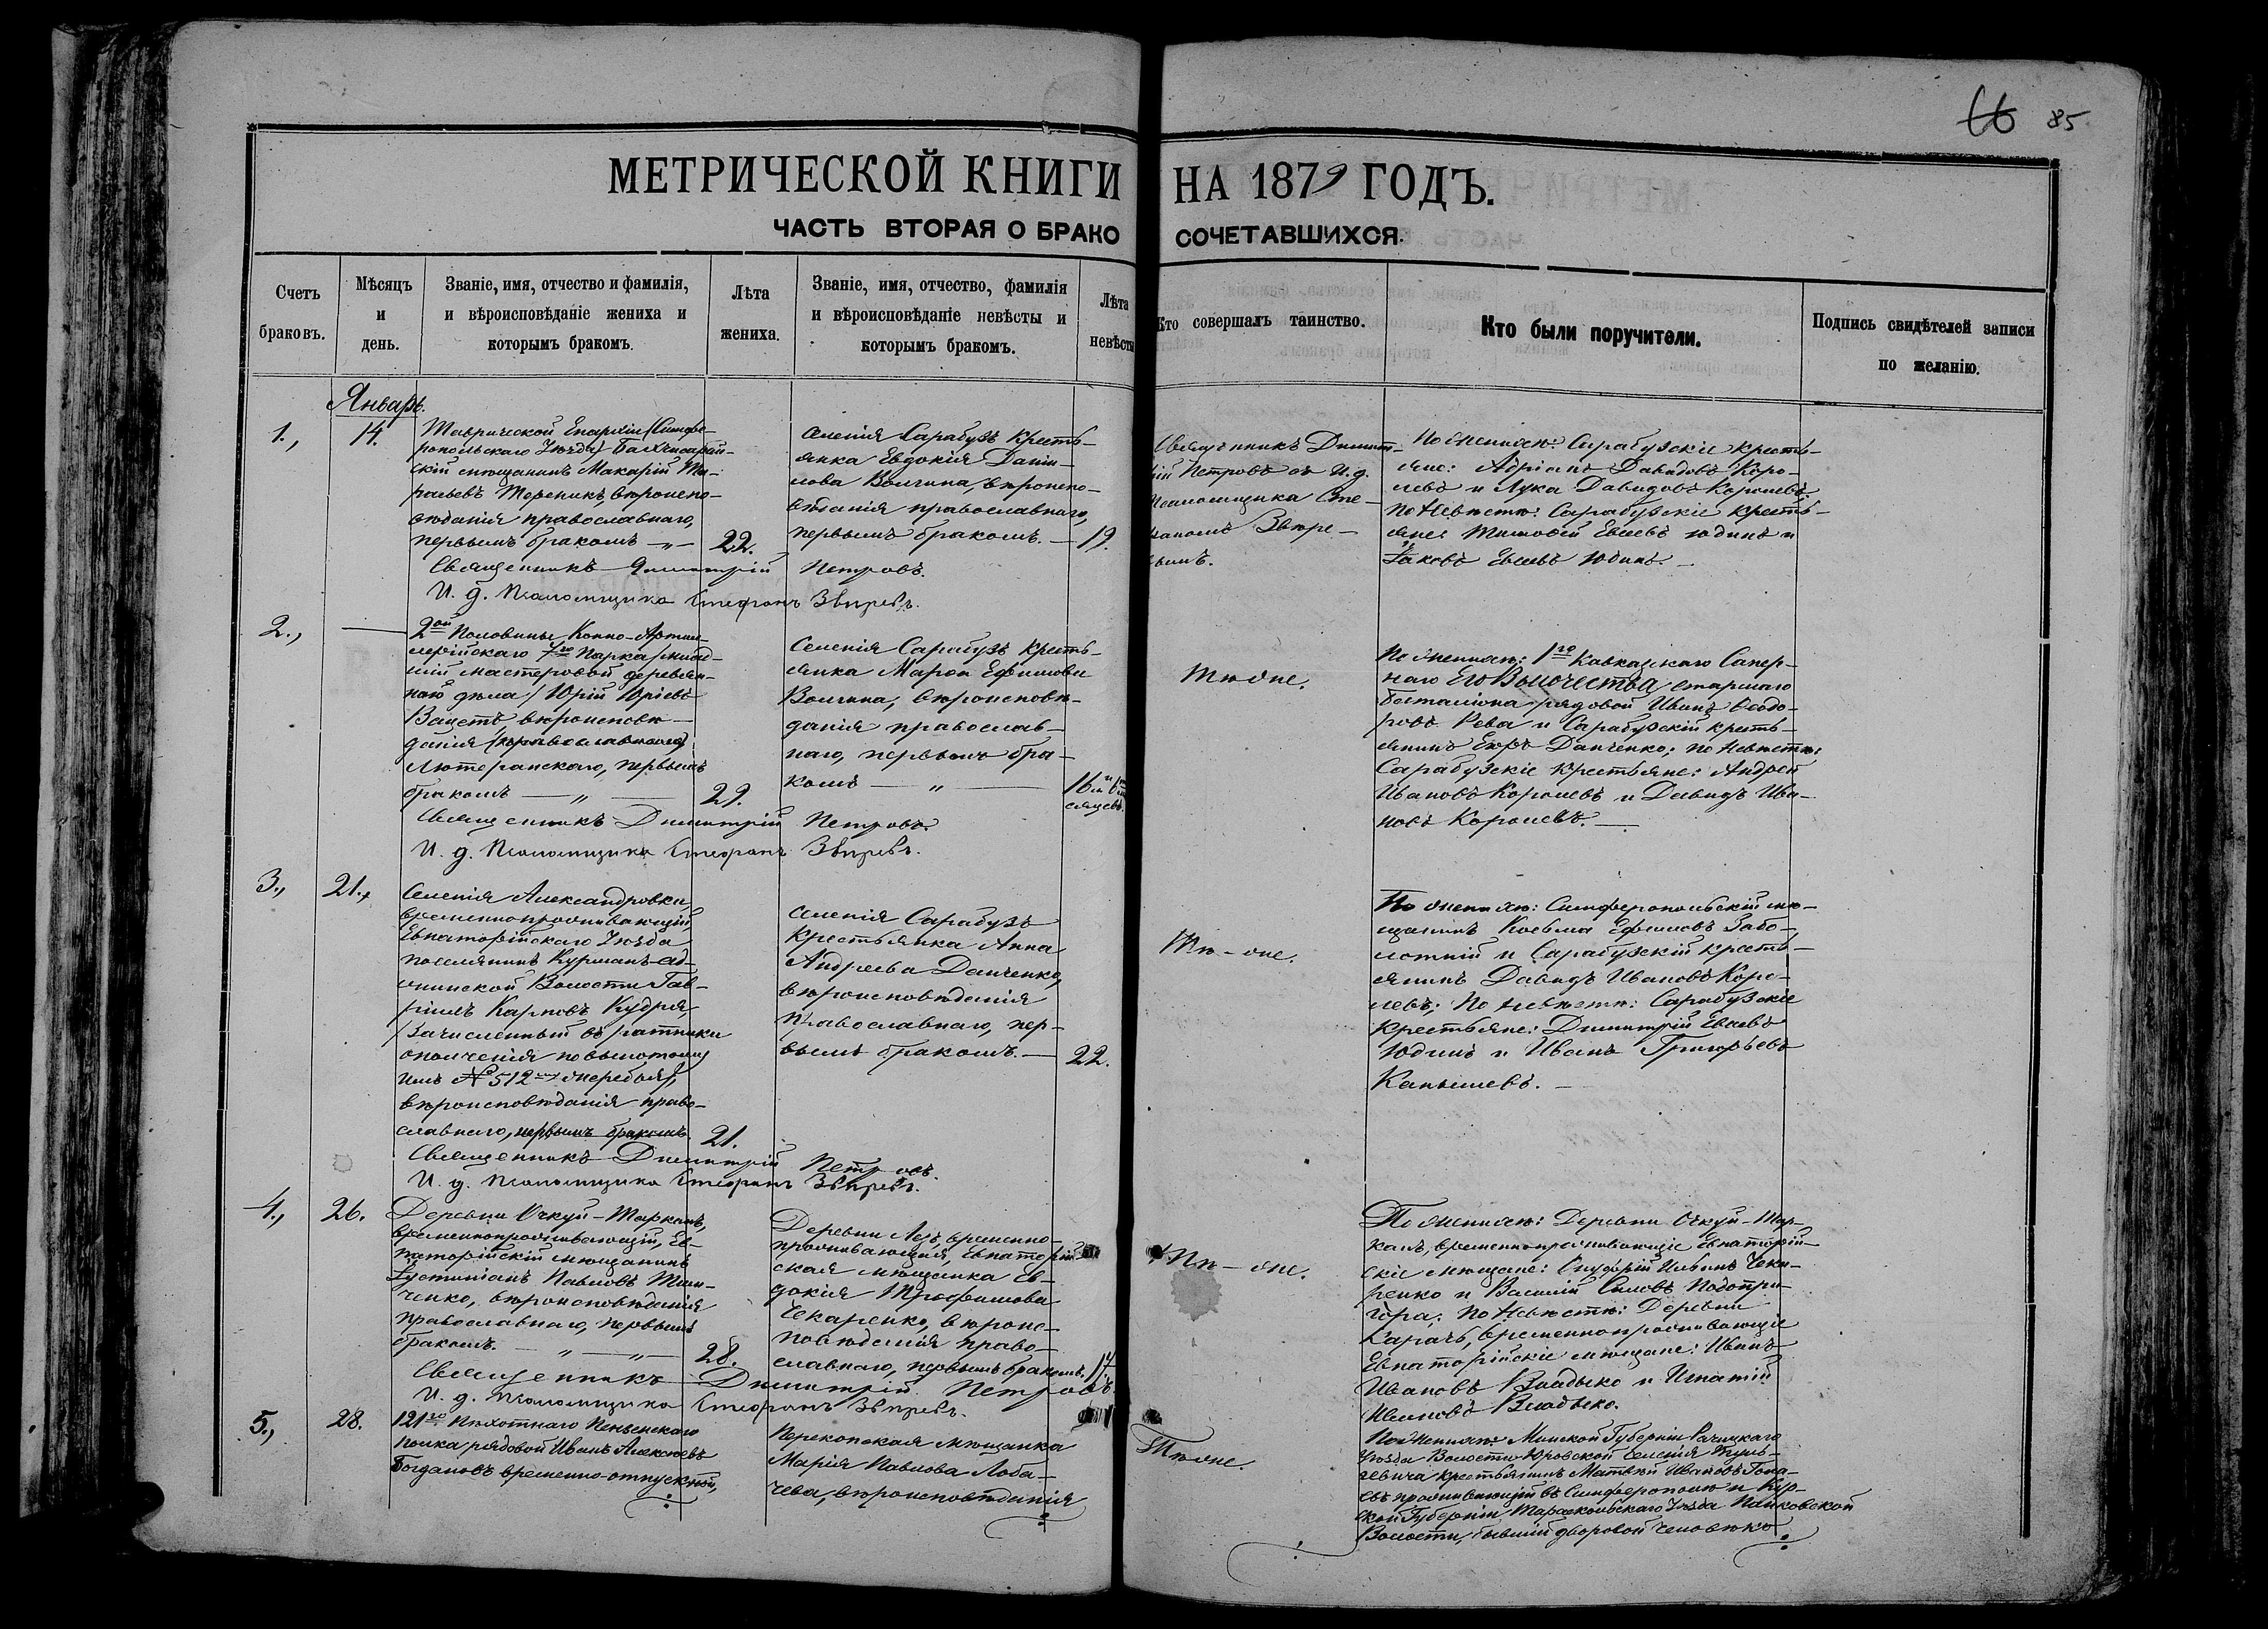 66 85
МЕТРИЧЕСКОЙ КНИГИ НА 1879 ГОДЪ.
ЧАСТЬ ВТОРАЯ О БРАКО СОЧЕТАВШИХСЯ.
Счетъ
браковъ.
Мѣсяцъ
и
день.
Званіе, имя, отчество и фамилія,
и вѣроисповѣданіе жениха и
которымъ бракомъ.
Лѣта
жениха.
Званіе, имя, отчество, фамилія
и вѣроисповѣданіе невѣсты и
которымъ бракомъ.
Лѣта
невѣсты
Кто совершалъ таинство.
Кто были поручители.
Подпись свидѣтелей записи
по желанію.
Январь.
1., 14.
Таврической Епархіи (Симфе-
ропольскаго Уѣзда) Бахчисарай-
скій мѣщанинъ Макарій
вѣроиспо-
вѣданія православнаго,
первымъ бракомъ — „ — 22.
Селенія Сарабузъ Кресть-
янка Евдокія Дани-
лова Волгина, вѣроиспо-
вѣданія православнаго,
первымъ бракомъ. — 19.
Священникъ Димит-
рій Петровъ съ И. д.
Псаломщика Сте-
фаномъ Звѣре-
вымъ.
По женихѣ: Сарабузскіе кресть-
яне: Адріанъ Давидовъ Коро-
левъ и Лука Давидовъ Королевъ.
По Невѣстѣ: Сарабузскіе кресть-
яне: Тимофей Евсевъ Юдинъ и
Іаковъ Евсевъ Юдинъ. —
Священникъ Димитрій Петровъ.
И. д. Псаломщика Стефанъ Звѣревъ.
2., —
2ой Половины Конно-Артил-
лерійскаго Парка /млад-
шій мастеровой деревян-
наго дѣла/ Юрій Юріевъ
вѣроисповѣ-
данія (православнаго)
Лютеранскаго, первымъ
бракомъ — „ — 29.
Селенія Сарабузъ кресть-
янка Марѳа Ефимова
Волгина, вѣроисповѣ-
данія православ-
наго, первымъ бра-
комъ — „ — 16
сяцевъ.
Тѣ же.
По женихѣ: 1го Кавказскаго Сапер-
наго Его Высочества старшаго
баталіона рядовой Иванъ Ѳеодо-
ровъ Рева и Сарабузскій кресть-
янинъ Данченко; по невѣстѣ:
Сарабузскіе крестьяне: Андрей
Ивановъ Королевъ и Давидъ Ива-
новъ Королевъ. —
Священникъ Димитрій Петровъ.
И. д. Псаломщика Стефанъ Звѣревъ.
3., 21.
Селенія Александровки,
временнопроживающій
Евпаторійскаго Уѣзда
поселянинъ Курманъ-
Волости Гав-
ріилъ Карповъ Кудря
/зачисленный въ ратники
ополченія по вынутому
имъ № 512 жеребья/,
вѣроисповѣданія право-
славнаго, первымъ бракомъ. 21.
Селенія Сарабузъ
Крестьянка Анна
Андреева Данченко,
вѣроисповѣданія
Православнаго, пер-
вымъ бракомъ. — 22.
Тѣ-же.
По женихѣ: Симферопольскій мѣ-
щанинъ Косьма Ефимовъ Забо-
лотній и Сарабузскій кресть-
янинъ Давидъ Ивановъ Коро-
левъ; По невѣстѣ: Сарабузскіе
крестьяне: Димитрій Евсевъ
Юдинъ и Иванъ Григорьевъ
Священникъ Димитрій Петровъ.
И. д. Псаломщика Стефанъ Звѣревъ.
4., 26.
Деревни Очкуй-Тарханъ,
временнопроживающій, Ев-
паторійскій мѣщанинъ
Іустиніанъ Павловъ
вѣроисповѣданія
Православнаго, первымъ
бракомъ. — „ — „ — 28.
Деревни временно-
проживающая, Евпаторій-
ская мѣщанка Ев-
докія Трофимова
Чекаренко, вѣроис-
повѣданія право-
славнаго, первымъ бракомъ. 17.
Тѣ-же.
По женихѣ: Деревни Очкуй-Тар-
ханъ, временнопроживающіе Евпаторій-
скіе мѣщане: Онуфрій Ивановъ Чека-
ренко и Василій Подопри-
гора; по невѣстѣ: Деревни
Карачъ, временнопроживающіе
Евпаторійскіе мѣщане: Иванъ
Ивановъ Владыко и Игнатій
Ивановъ Владыко.
Священникъ Димитрій Петровъ
И. д. Псаломщика Стефанъ Звѣревъ.
5., 28.
121го Пѣхотнаго Пензенскаго
полка рядовой Иванъ Алексѣевъ
Богдановъ временно-отпускной,
Перекопская мѣщанка
Марія Павлова Лоба-
чева, вѣроисповѣданія
Тѣже.
По женихѣ: Минской Губерніи Рѣчицкаго
Уѣзда Волости Юровской селенія
крестьянинъ Матвей Ивановъ
проживающій въ Симферополѣ и Кур-
ской Губерніи Уѣзда
Волости, бывшій дворовой человѣкъ